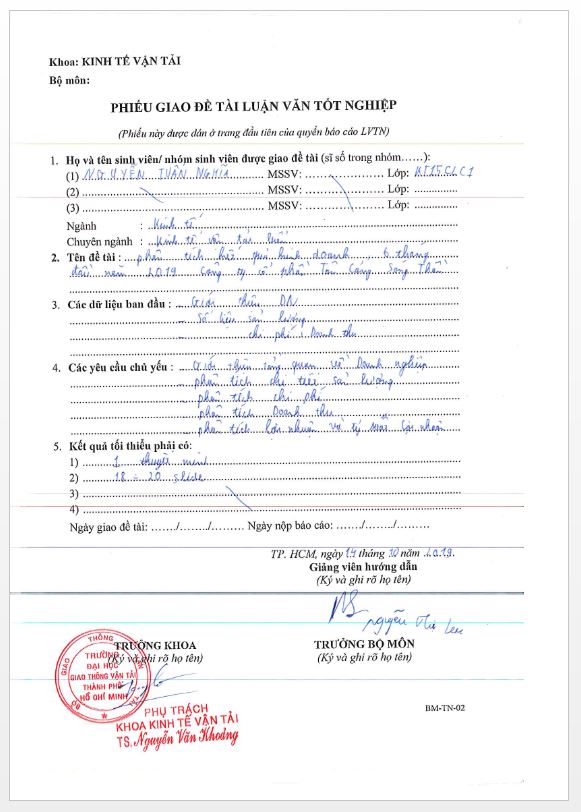 Khoa: KINH TẾ VẬN TẢI
Bộ môn:
PHIẾU GIAO ĐỀ TÀI LUẬN VĂN TỐT NGHIỆP
(Phiếu này được dán ở trang đầu tiên của quyển báo cáo LVTN)
1. Họ và tên sinh viên/ nhóm sinh viên được giao đề tài (sĩ số trong nhóm......):
(1) NGUYỄN TUẤN NGHĨA MSSV: .................... Lớp: KT15CLC1
(2) ........................................ MSSV: .................... Lớp: ..............
(3) ........................................ MSSV: .................... Lớp: ..............
Ngành : Kinh tế
Chuyên ngành : Kinh tế vận tải biển
2. Tên đề tài : phân tích kết quả kinh doanh 6 tháng
đầu năm 2019 công ty cổ phần Tân Cảng Sóng Thần
3. Các dữ liệu ban đầu : Giới thiệu DN
- Số liệu sản lượng
chi phí, Doanh thu
4. Các yêu cầu chủ yếu : Giới thiệu tổng quan về Doanh nghiệp
- phân tích chi tiết sản lượng
- phân tích chi phí
- phân tích Doanh thu
- phân tích lợi nhuận và tỷ suất lợi nhuận
5. Kết quả tối thiểu phải có:
1) 1 thuyết minh
2) 18 - 20 slide
3) ........................................
4) ........................................
Ngày giao đề tài: ....../....../......... Ngày nộp báo cáo: ....../....../.........
TP. HCM, ngày 14 tháng 10 năm 2019.
Giảng viên hướng dẫn
(Ký và ghi rõ họ tên)
Nguyễn Thị
TRƯỞNG KHOA
(Ký và ghi rõ họ tên)
TRƯỞNG BỘ MÔN
(Ký và ghi rõ họ tên)
BỘ GIAO THÔNG VẬN TẢI
TRƯỜNG
ĐẠI HỌC
GIAO THÔNG VẬN TẢI
THÀNH PHỐ
HỒ CHÍ MINH
PHỤ TRÁCH
KHOA KINH TẾ VẬN TẢI
TS. Nguyễn Văn Khoảng
BM-TN-02